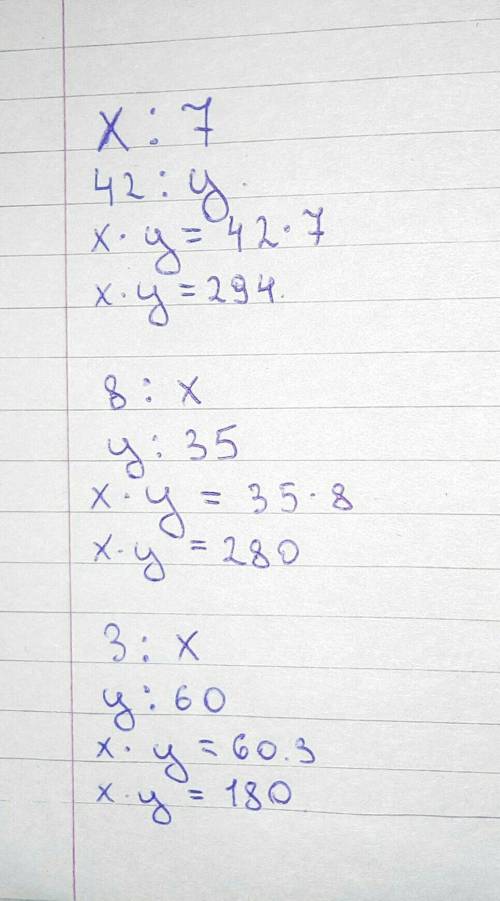 x : 7
42 : y.
x · y = 42 · 7
x · y = 294.
8 : x
y : 35
x · y = 35 · 8
x · y = 280
3 : x
y : 60
x · y = 60.3
x · y = 180